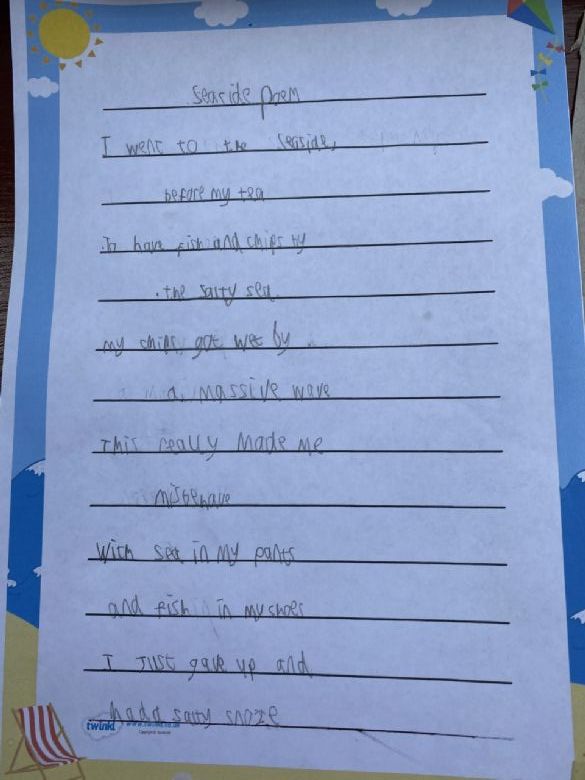 Seaside Poem
I went to the seaside,
before my tea
To have fish and chips by
the salty sea.
my chips got wet by
a massive wave
This really Made me
misbehave
With sea in my pants
and fish in my shoes
I Just gave up and
had a salty snoze
twinkl www.twinkl.co.uk